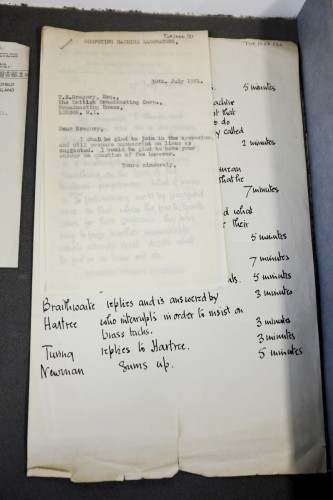 COMPUTING MACHINE LABORATORY,
30th. July 1951.
T.S.Gregory, Esq.,
The British Broadcasting Corp.,
Broadcasting House,
LONDON, W.1.
Dear Gregory,
I shall be glad to join in the
and will prepare manuscript on lines as
suggested. I would be glad to have your
answer on question of fee however.
Yours sincerely,
5 minutes
that
do
called
2 minutes
that he
7 minutes
what
their
5 minutes
7 minutes
5 minutes
Braithwaite replies and is answered by 3 minutes
Hartree who interrupts in order to insist on
brass tacks. 3 minutes
Turing replies to Hartree. 3 minutes
Newman Sums up. 5 minutes